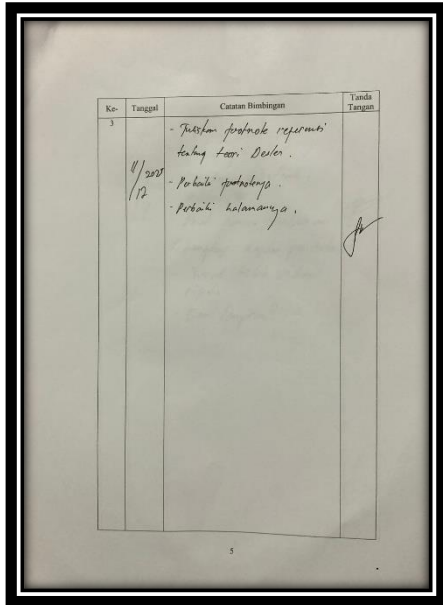 Ke-
Tanggal
Catatan Bimbingan
Tanda
Tangan
3
11/12 2025
- Tuliskan footnote referensi
tentang teori Desler.
- Perbaiki footnotenya.
- Perbaiki halamannya.
5